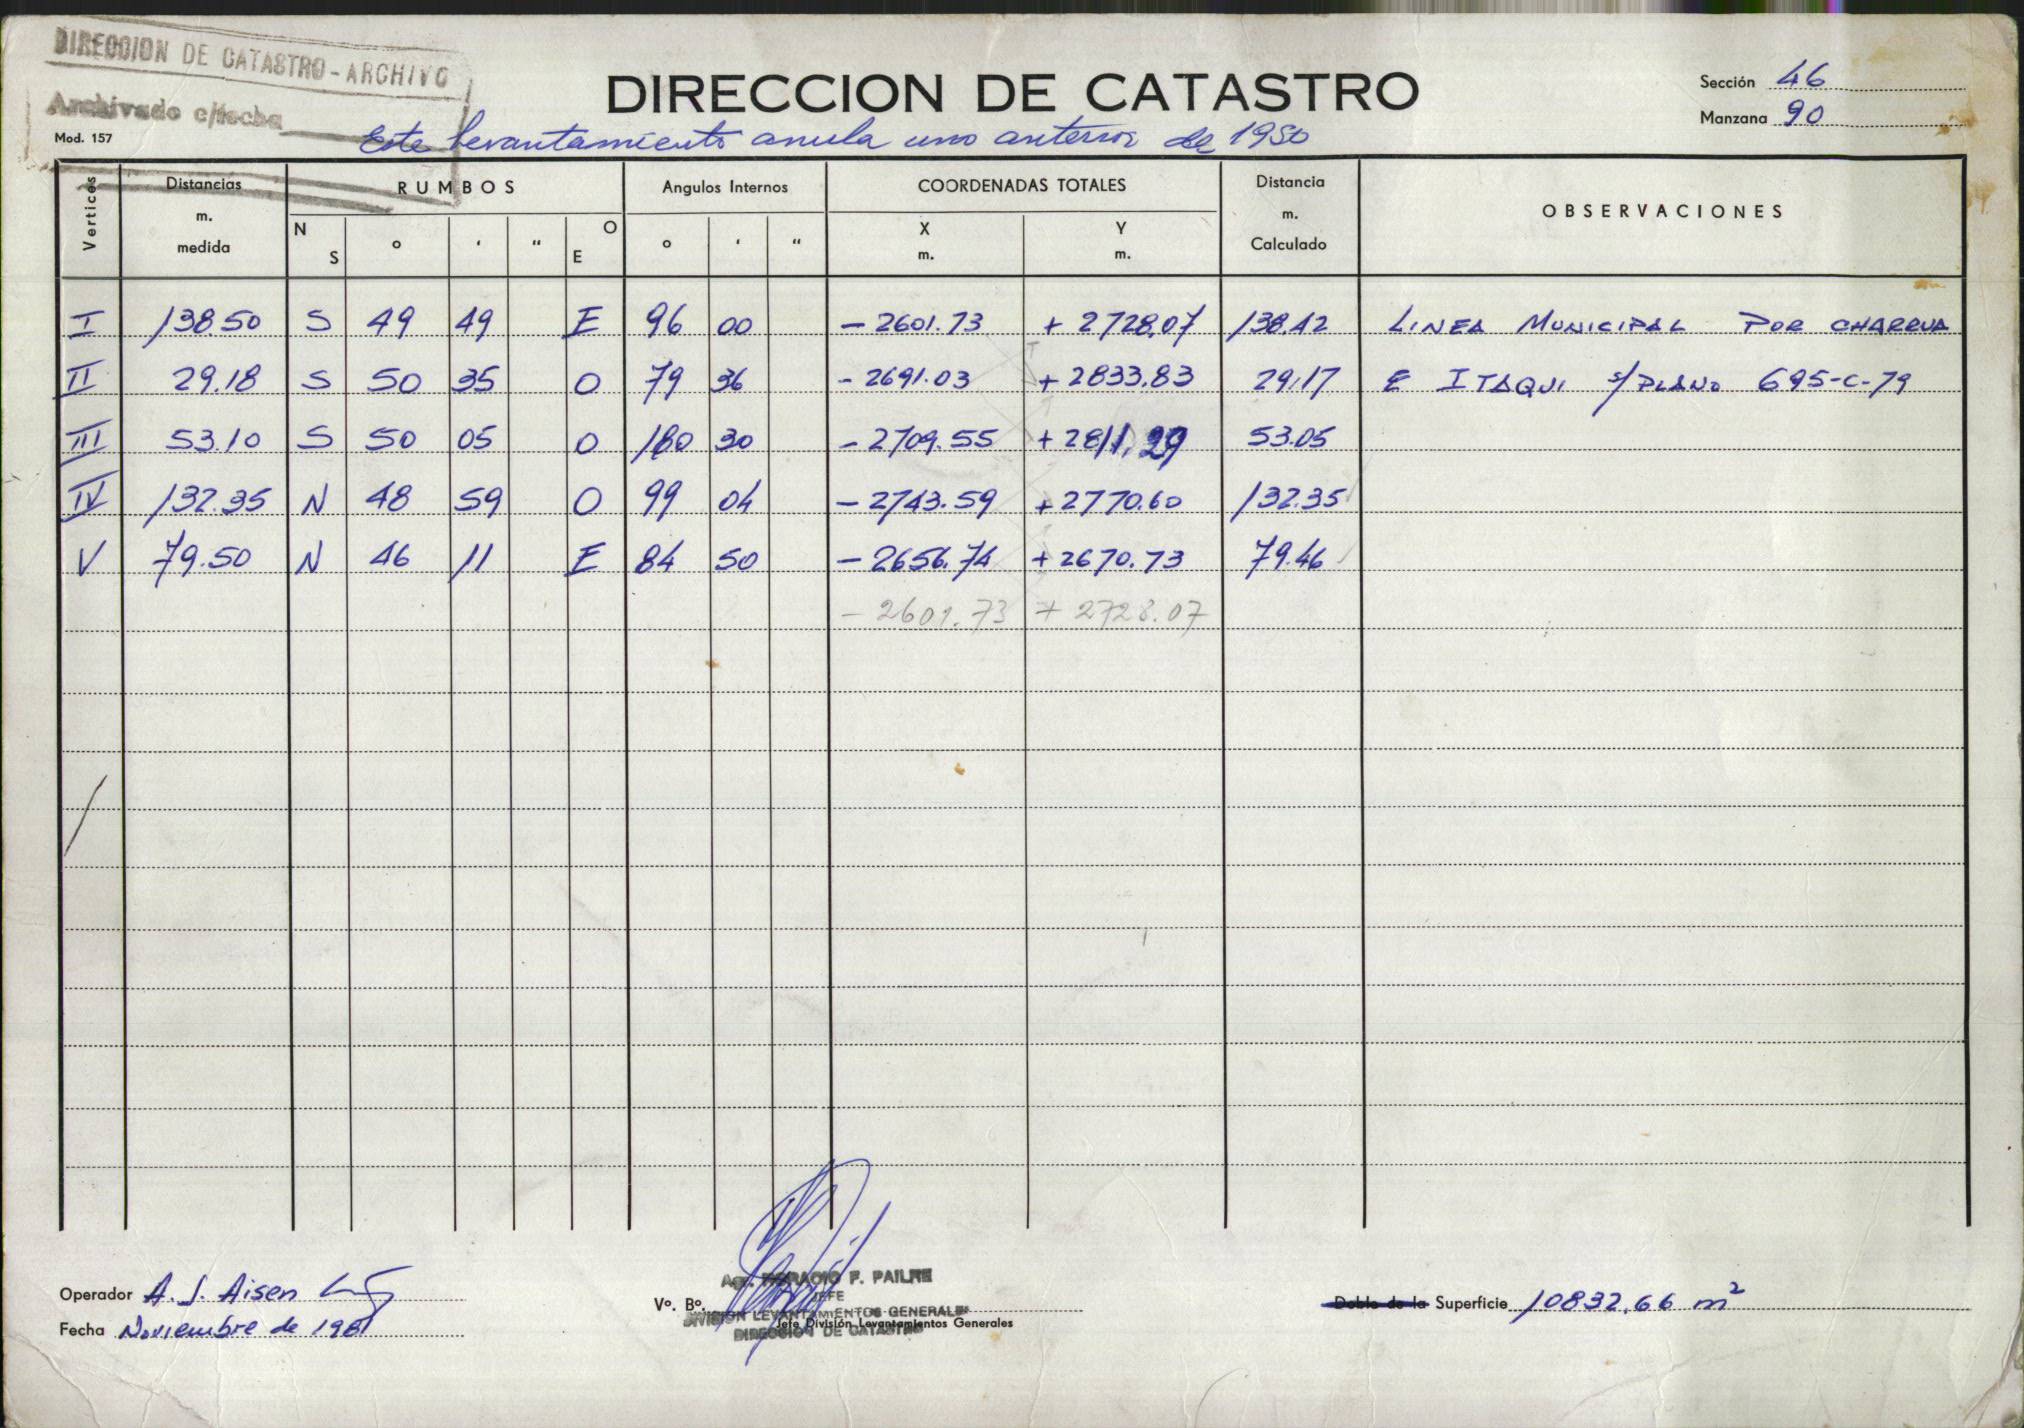 DIRECCION DE CATASTRO - ARCHIVO
Archivado c/fecha
Mod. 157
DIRECCION DE CATASTRO
Sección 46
Manzana 90
Este levantamiento anula uno anterior de 1980
Vertices Distancias m. medida RUMBOS Angulos Internos COORDENADAS TOTALES Distancia m. Calculado OBSERVACIONES
N S ° ' " O E ° ' " X m. Y m.
I 138.50 S 49 49 E 96 00 - 2601.73 + 2728.07 138.42 LINEA MUNICIPAL POR CHARRUA
II 29.18 S 50 35 O 79 36 - 2691.03 + 2833.83 29.17 E ITAQUI s/PLANO 695-C-79
III 53.10 S 50 05 O 180 30 - 2709.55 + 2811.29 53.05
IV 132.35 N 48 59 O 99 04 - 2743.59 + 2770.60 132.35
V 79.50 N 46 11 E 84 50 - 2656.74 + 2670.73 79.46
- 2601.73 + 2728.07
Operador A. J. Aisen
Fecha Noviembre de 1981
Vº. Bº.
HORACIO F. PAILRE
JEFE
DIVISION LEVANTAMIENTOS GENERALES
Jefe División Levantamientos Generales
DIRECCION DE CATASTRO
Doble de la Superficie 10832,66 m²